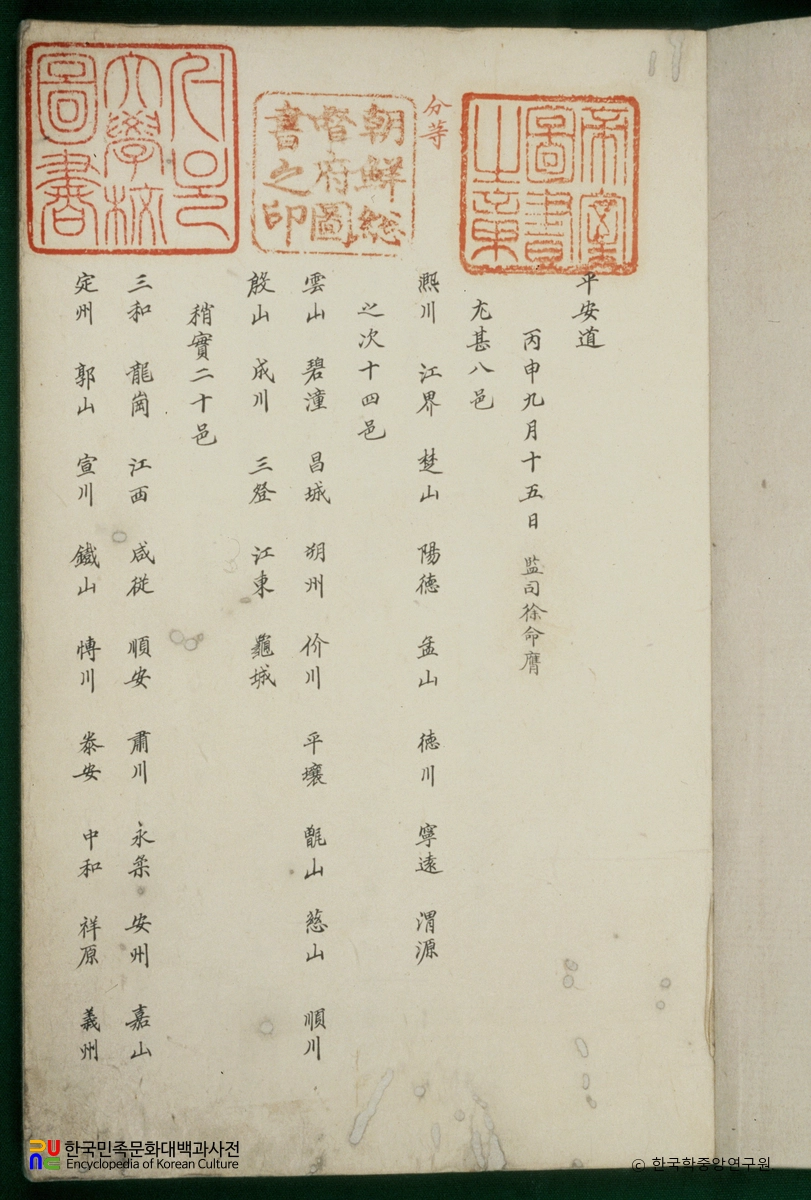 帝室
圖書
之章
分等
朝鮮総
督府圖
書之印
서울
大學校
圖書
平安道
丙申九月十五日 監司徐命膺
尤甚八邑
熙川 江界 楚山 陽徳 孟山 徳川 寧遠 渭源
之次十四邑
雲山 碧潼 昌城 朔州 价川 平壤 甑山 慈山 順川
殷山 成川 三登 江東 龜城
稍實二十邑
三和 龍崗 江西 咸從 順安 肅川 永柔 安州 嘉山
定州 郭山 宣川 鐵山 博川 泰安 中和 祥原 義州
한국민족문화대백과사전
Encyclopedia of Korean Culture
© 한국학중앙연구원